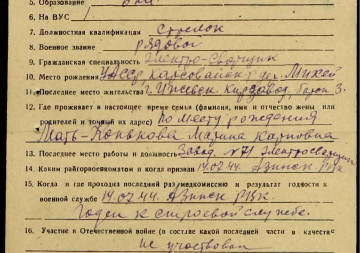 5. Образование
6. На ВУС
7. Должностная квалификация Стрелок
8. Военное звание рядовой
9. Гражданская специальность Электро-сварщик
10. Место рождения УАССР р-н дер.
11. Последнее место жительства г. Ижевск
12. Где проживает в настоящее время семья (фамилия, имя и отчество жены или
родителей и точный их адрес) По месту рождения
Мать - Конькова Марина Карповна
13. Последнее место работы и должность Завод №71 Электросварщик
14. Каким райгорвоенкоматом и когда призван 14.07.44. Азинск РВК
15. Когда и где проходил последний раз медкомиссию и результат годности к
военной службе 14.07.44. Азинск РВК
Годен к строевой службе.
16. Участие в Отечественной войне (в составе какой последней части и в качестве
не участвовал